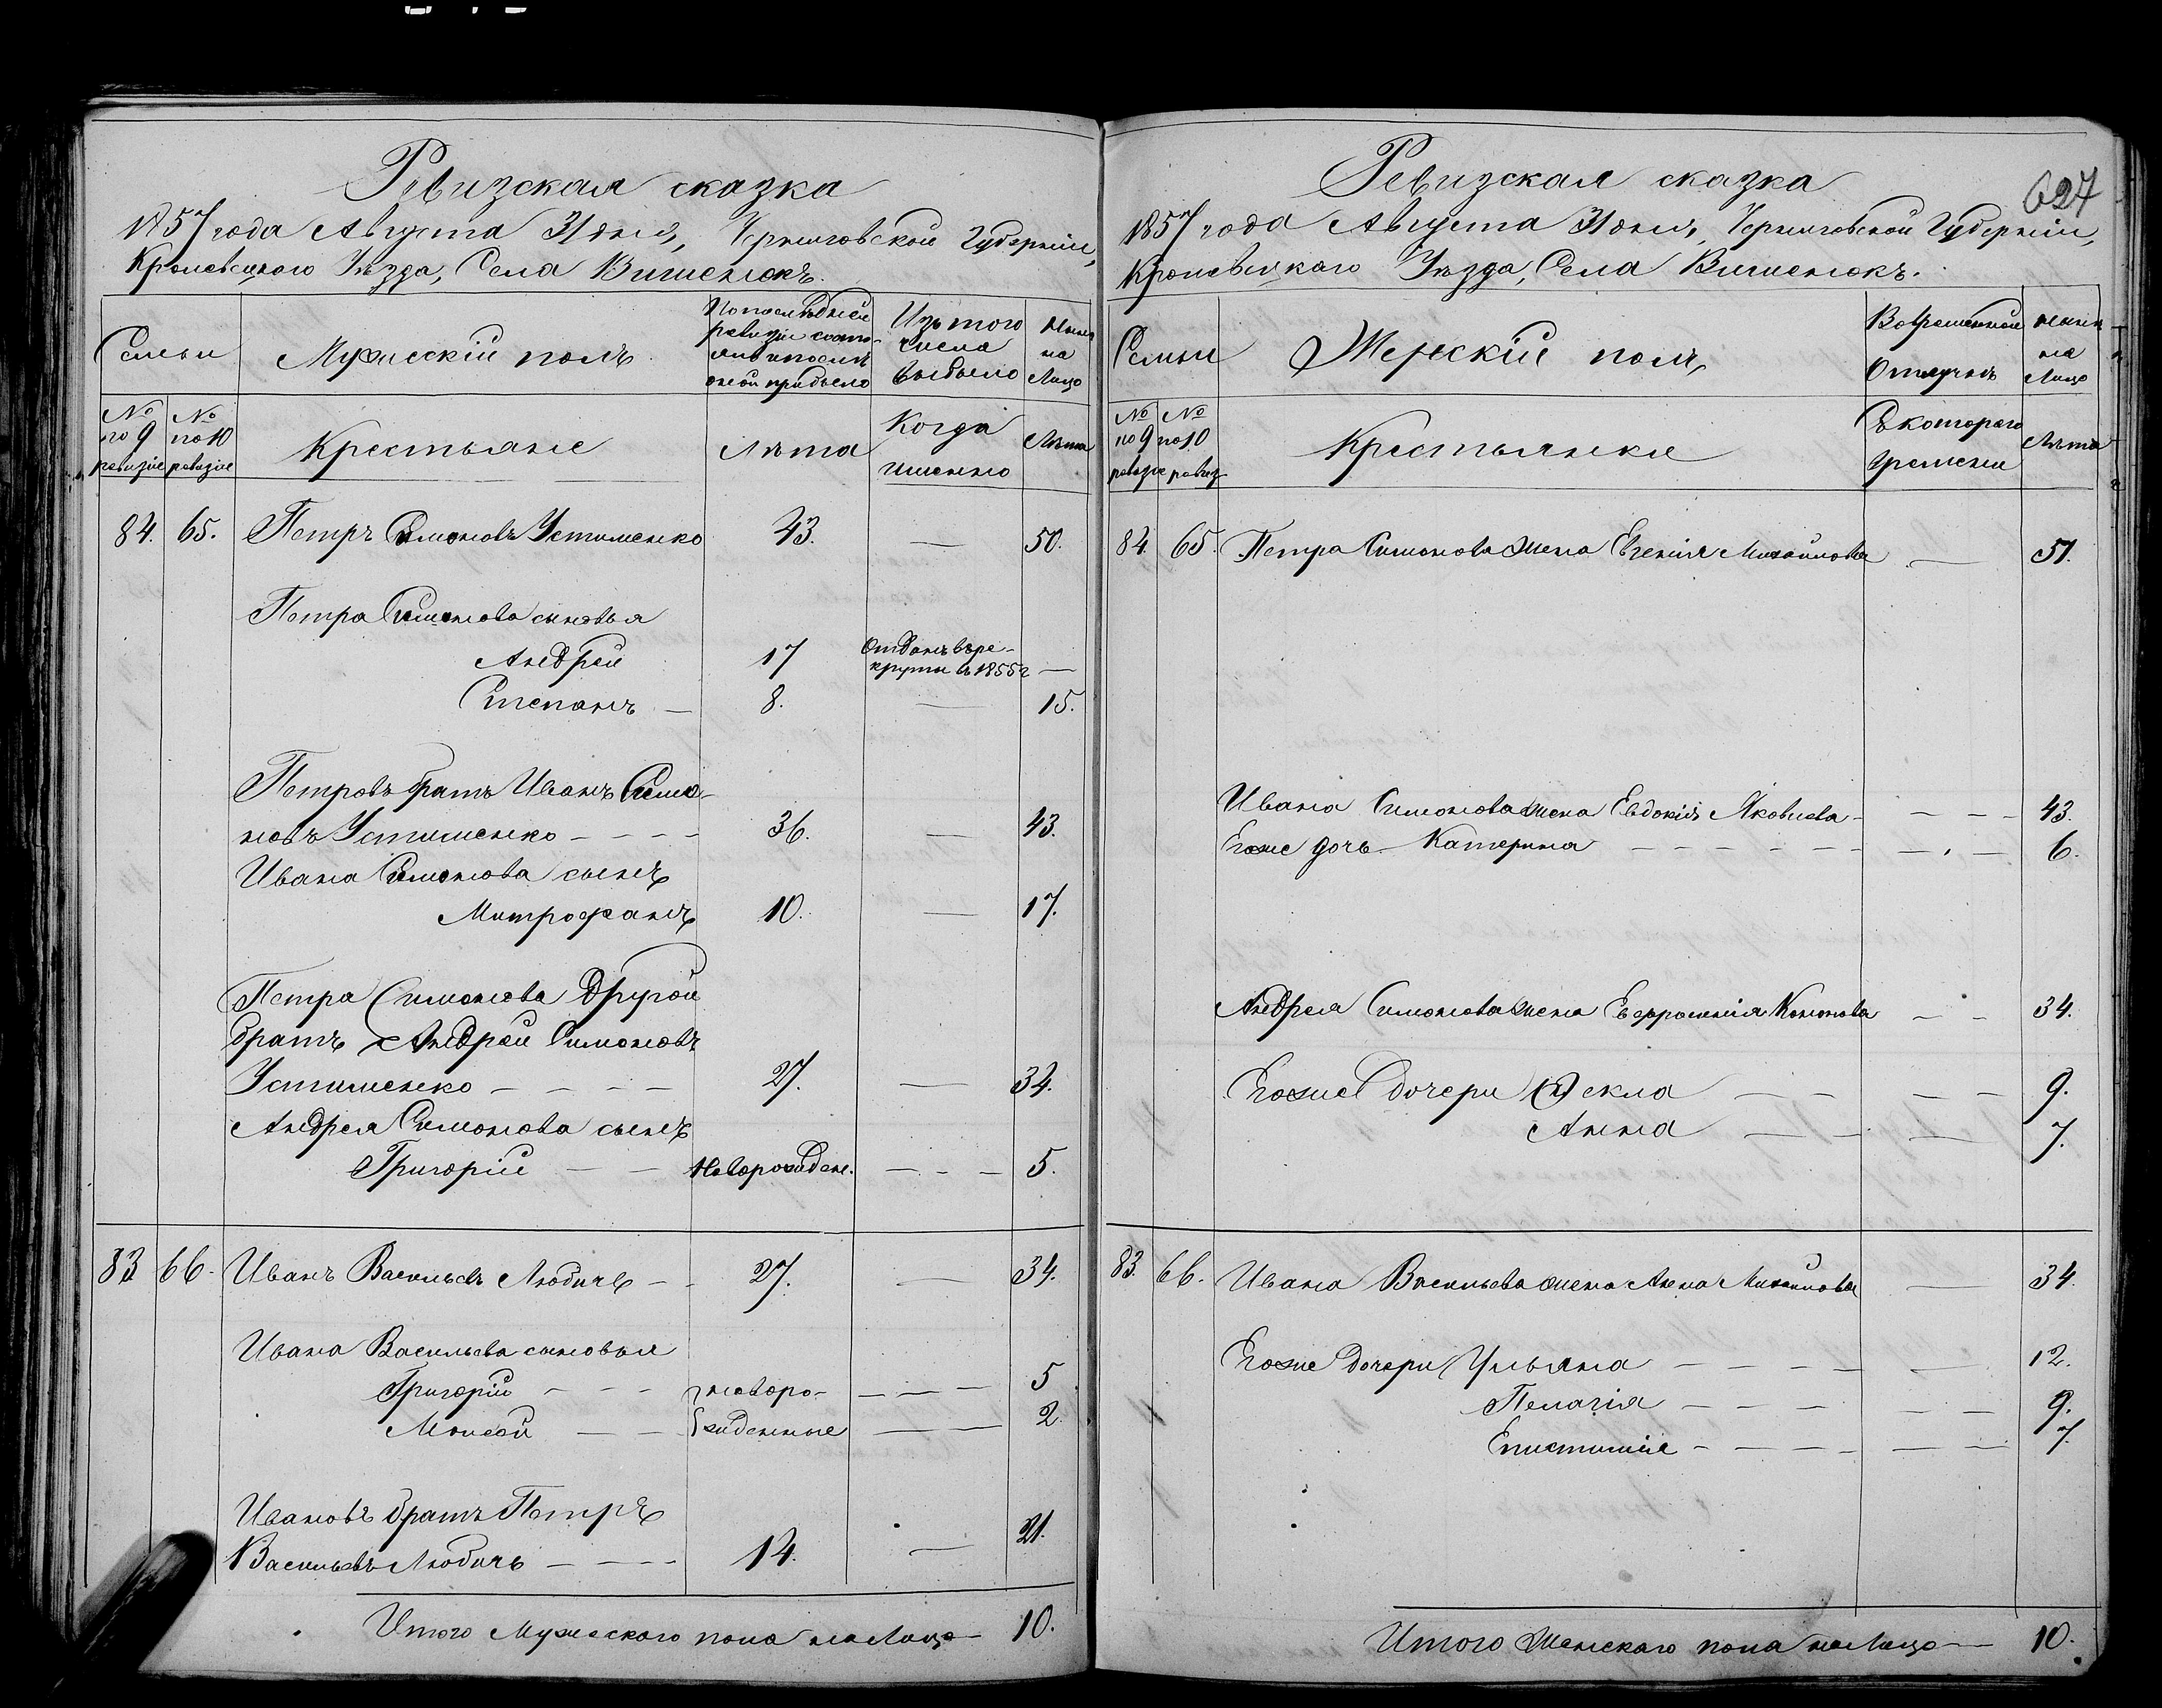 Ревизская сказка
1857 года Августа 31 дня, Черниговской Губерніи,
Кролевецкого Уѣзда, Села Вишенокъ.
Семьи
Мужескій полъ
По последней ревизіи состояло и послѣ оной прибыло
Изъ того числа выбыло
Нынѣ на лицо
№ по 9 ревизіи
№ по 10 ревизіи
Крестьяне
Лѣта
Когда именно
Лѣта
84. 65. Петръ Симоновъ Устименко 43. — 50.
Петра Симонова сыновья
Андрей 17 Отданъ въ ре-
круты в 1855 г —
Степанъ — 8. — 15.
Петровъ братъ Иванъ Симо-
новъ Устименко - - - - 36. — 43.
Ивана Симонова сынъ
Митрофанъ 10. — 17.
Петра Симонова другой
братъ Андрей Симоновъ
Устименко — — — — 27. — 34.
Андрея Симонова сынъ
Григорій — — Новорожден. — - - 5.
83 66. Иванъ Васильевъ Любичъ - - 27. — 34.
Ивана Васильева сыновья
Григорій - - - новоро- - — — 5
Моисей — — жденные — — 2.
Ивановъ братъ Петръ
Васильевъ Любичъ — - - - 14. — 21.
Итого Мужескаго пола на Лицо — 10.
627
Ревизская сказка
1857 года Августа 31 дня, Черниговской Губерніи,
Кролевецкаго Уѣзда, Села Вишенокъ.
Семьи
Женскій полъ,
Во временной Отлучкѣ
нынѣ на Лицо
№ по 9 ревизіи
№ по 10 ревиз
Крестьянки
Съ котораго времени
Лѣта
84. 65. Петра Симонова жена Евгенія Михайлова — 51.
Ивана Симонова жена Евдокія Яковлева - — - - 43.
Его же дочь Катерина — - - - - - — . — 6.
Андрея Симонова жена Евфросинія Кононова — - 34.
Его же дочери Ѳекла — — — — 9.
Анна — — — 7.
83. 66. Ивана Васильева жена Анна Михайлова — 34.
Его же дочери Ульяна — - — - — 12.
Пелагія — - - - — — 9.
Епистимія - - — - — — 7.
Итого Женскаго пола на Лицо — 10.